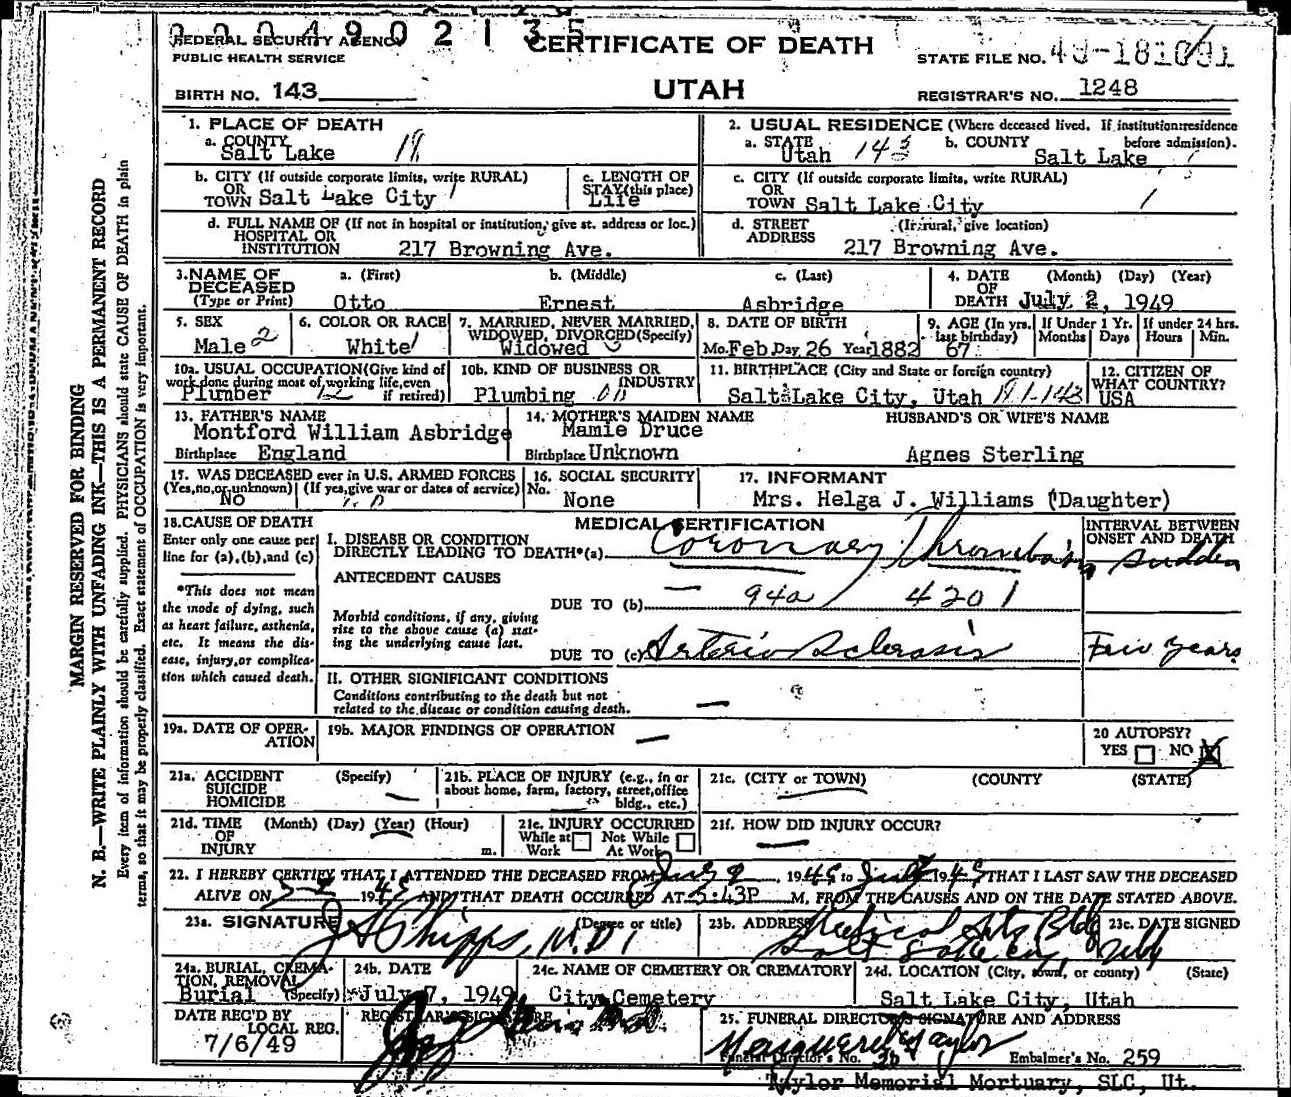 0 0 0 4 9 0 2 1 3 5
FEDERAL SECURITY AGENCY
PUBLIC HEALTH SERVICE
CERTIFICATE OF DEATH
STATE FILE NO. 49-181091
BIRTH NO. 143
UTAH
REGISTRAR'S NO. 1248
MARGIN RESERVED FOR BINDING
N. B.—WRITE PLAINLY WITH UNFADING INK—THIS IS A PERMANENT RECORD
Every item of information should be carefully supplied. PHYSICIANS should state CAUSE OF DEATH in plain
terms, so that it may be properly classified. Exact statement of OCCUPATION is very important.
1. PLACE OF DEATH
a. COUNTY
Salt Lake
2. USUAL RESIDENCE (Where deceased lived. If institution: residence
before admission).
a. STATE Utah 143 b. COUNTY Salt Lake
b. CITY (If outside corporate limits, write RURAL)
OR
TOWN Salt Lake City
c. LENGTH OF
STAY (this place)
Life
c. CITY (If outside corporate limits, write RURAL)
OR
TOWN Salt Lake City
d. FULL NAME OF (If not in hospital or institution, give st. address or loc.)
HOSPITAL OR
INSTITUTION 217 Browning Ave.
d. STREET (If rural, give location)
ADDRESS
217 Browning Ave.
3. NAME OF
DECEASED
(Type or Print)
a. (First) b. (Middle) c. (Last)
Otto Ernest Asbridge
4. DATE (Month) (Day) (Year)
OF
DEATH July 2, 1949
5. SEX
Male 2
6. COLOR OR RACE
White
7. MARRIED, NEVER MARRIED,
WIDOWED, DIVORCED (Specify)
Widowed
8. DATE OF BIRTH
Mo. Feb Day 26 Year 1882
9. AGE (In yrs.
last birthday)
67
If Under 1 Yr.
Months Days
If under 24 hrs.
Hours Min.
10a. USUAL OCCUPATION (Give kind of
work done during most of working life, even
if retired)
Plumber
10b. KIND OF BUSINESS OR
INDUSTRY
Plumbing
11. BIRTHPLACE (City and State or foreign country)
Salt Lake City, Utah
12. CITIZEN OF
WHAT COUNTRY?
USA
13. FATHER'S NAME
Montford William Asbridge
Birthplace England
14. MOTHER'S MAIDEN NAME
Mamie Druce
Birthplace Unknown
HUSBAND'S OR WIFE'S NAME
Agnes Sterling
15. WAS DECEASED ever in U.S. ARMED FORCES
(Yes, no, or unknown) (If yes, give war or dates of service)
No
16. SOCIAL SECURITY
No.
None
17. INFORMANT
Mrs. Helga J. Williams (Daughter)
18. CAUSE OF DEATH
Enter only one cause per
line for (a), (b), and (c)
*This does not mean
the mode of dying, such
as heart failure, asthenia,
etc. It means the dis-
ease, injury, or complica-
tion which caused death.
MEDICAL CERTIFICATION
INTERVAL BETWEEN
ONSET AND DEATH
I. DISEASE OR CONDITION
DIRECTLY LEADING TO DEATH*(a) Coronary Thrombosis sudden
ANTECEDENT CAUSES
DUE TO (b) — 94a 4201
Morbid conditions, if any, giving
rise to the above cause (a) stat-
ing the underlying cause last.
DUE TO (c) Arterio Sclerosis Few years
II. OTHER SIGNIFICANT CONDITIONS
Conditions contributing to the death but not
related to the disease or condition causing death. —
19a. DATE OF OPER-
ATION
19b. MAJOR FINDINGS OF OPERATION —
20 AUTOPSY?
YES NO X
21a. ACCIDENT (Specify)
SUICIDE
HOMICIDE
21b. PLACE OF INJURY (e.g., in or
about home, farm, factory, street, office
bldg., etc.)
21c. (CITY or TOWN) (COUNTY) (STATE)
21d. TIME (Month) (Day) (Year) (Hour)
OF
INJURY m.
21e. INJURY OCCURRED
While at Not While
Work At Work
21f. HOW DID INJURY OCCUR?
22. I HEREBY CERTIFY THAT I ATTENDED THE DECEASED FROM 1949 to July 1949 THAT I LAST SAW THE DECEASED
ALIVE ON 1949 AND THAT DEATH OCCURED AT 5:43P M, FROM THE CAUSES AND ON THE DATE STATED ABOVE.
23a. SIGNATURE (Degree or title)
J A Phipps, M.D.
23b. ADDRESS Medical Arts Bldg
Salt Lake City, Utah
23c. DATE SIGNED
24a. BURIAL, CREMA-
TION, REMOVAL
(Specify)
Burial
24b. DATE
July 7, 1949
24c. NAME OF CEMETERY OR CREMATORY
City Cemetery
24d. LOCATION (City, town, or county) (State)
Salt Lake City, Utah
DATE REC'D BY
LOCAL REG.
7/6/49
REGISTRAR'S SIGNATURE
25. FUNERAL DIRECTOR'S SIGNATURE AND ADDRESS
Marguerite Taylor
Funeral Director's No. 36 Embalmer's No. 259
Taylor Memorial Mortuary, SLC, Ut.